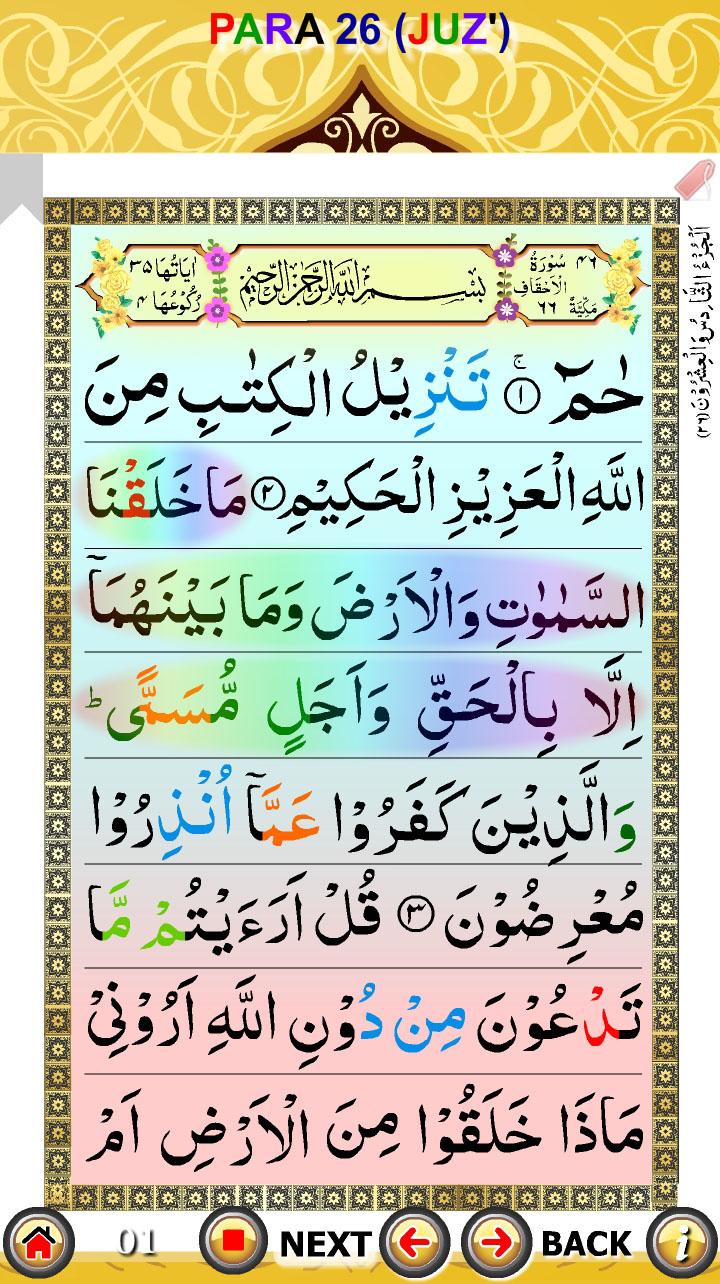 PARA 26 (JUZ')
اَلْجُزْءُ السَّادِسُ وَالْعِشْرُوْنَ (٢٦)
٤٦ سُوْرَةُ الْاَحْقَافِ مَكِّيَّةٌ ٦٦
بِسْمِ اللّٰهِ الرَّحْمٰنِ الرَّحِيْمِ
اٰيَاتُهَا ٣٥ رُكُوْعُهَا ٤
حٰمٓ ۚ ﴿١﴾ تَنْزِيْلُ الْكِتٰبِ مِنَ
اللّٰهِ الْعَزِيْزِ الْحَكِيْمِ ﴿٢﴾ مَا خَلَقْنَا
السَّمٰوٰتِ وَالْاَرْضَ وَمَا بَيْنَهُمَاۤ
اِلَّا بِالْحَقِّ وَاَجَلٍ مُّسَمًّى ؕ
وَالَّذِيْنَ كَفَرُوْا عَمَّاۤ اُنْذِرُوْا
مُعْرِضُوْنَ ﴿٣﴾ قُلْ اَرَءَيْتُمْ مَّا
تَدْعُوْنَ مِنْ دُوْنِ اللّٰهِ اَرُوْنِيْ
مَاذَا خَلَقُوْا مِنَ الْاَرْضِ اَمْ
01 NEXT BACK i